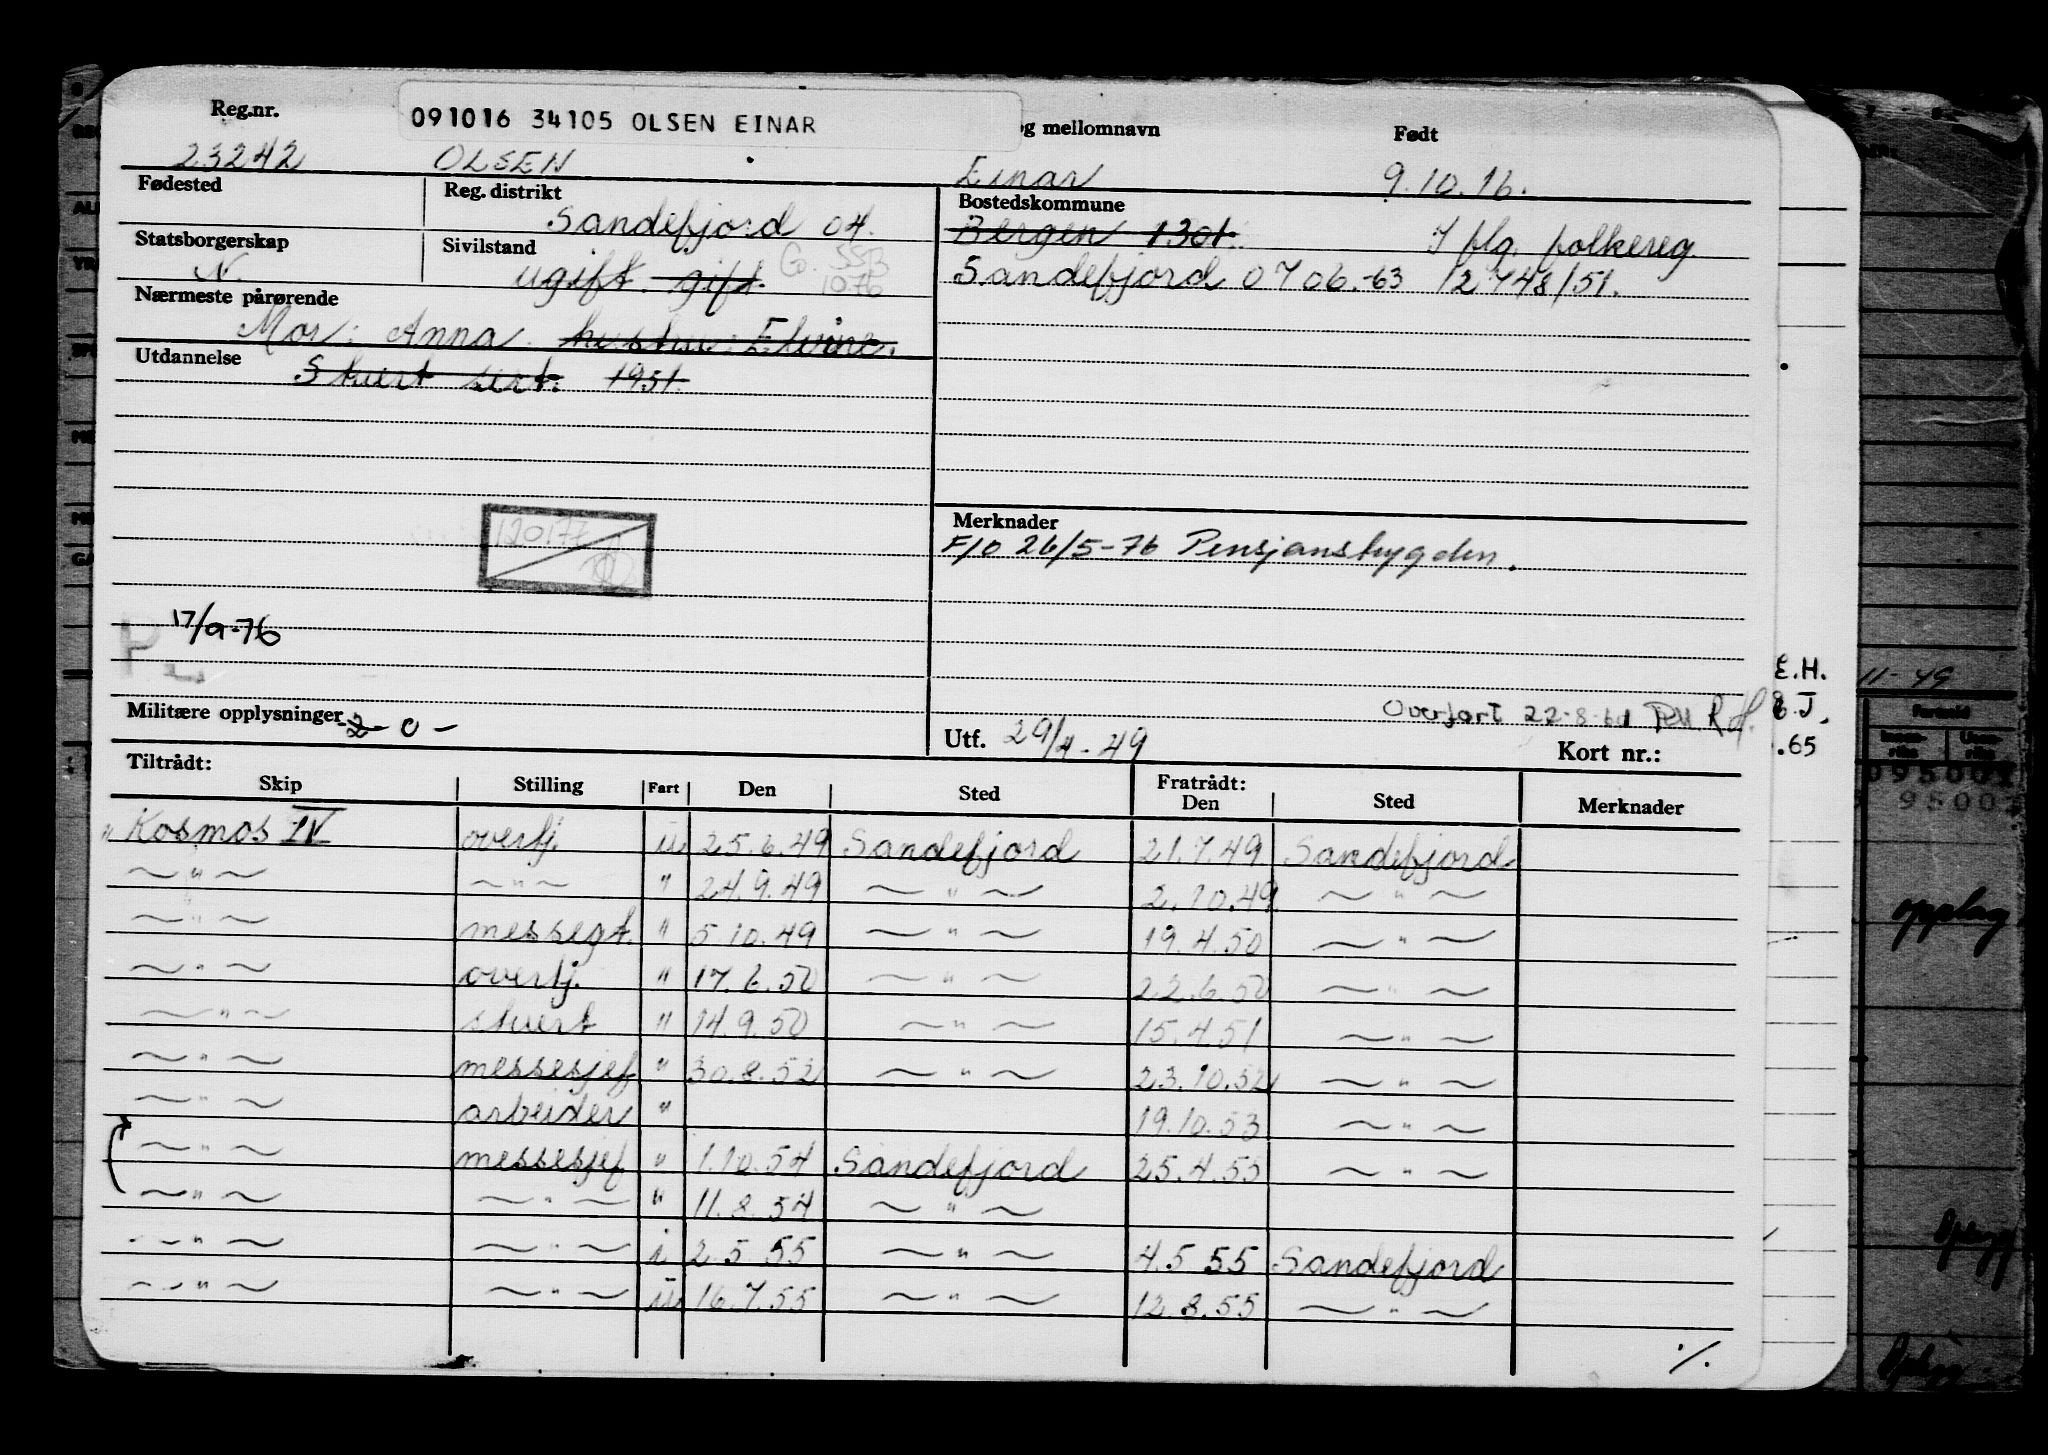 Reg.nr. 091016 34105 OLSEN EINAR og mellomnavn Født
23242 OLSEN Einar 9.10.16.
Fødested Reg. distrikt Bostedskommune
Sandefjord 04. Bergen 1301. I flg. folkereg.
Statsborgerskap Sivilstand
N. ugift. gift. G. SSB 1076 Sandefjord 0706.-63 12748/51.
Nærmeste pårørende
Mor: Anna. hustru: Elvine.
Utdannelse
Stuert sert. 1951.
120177
Merknader
F/O 26/5-76 Pensjonstrygden.
17/9-76
E.H.
11-49
Militære opplysninger -2- 0 -
Overført 22-8-61 R.H. J.
Utf. 29/4-49 Kort nr.: .65
Tiltrådt: Fratrådt:
Skip Stilling Fart Den Sted Den Sted Merknader
" Kosmos IV overtj. u 25.6.49 Sandefjord 21.7.49 Sandefjord
— " — — " — " 24.9.49 — " — 2.10.49 — " —
— " — messegt. " 5.10.49 — " — 19.4.50 — " —
— " — overtj. " 17.6.50 — " — 22.6.50 — " —
— " — stuert " 14.9.50 — " — 15.4.51 — " —
— " — messesjef " 30.8.52 — " — 23.10.52 — " —
— " — arbeider " 19.10.53 — " —
— " — messesjef " 1.10.54 Sandefjord 25.4.55 — " —
— " — — " — " 11.8.54 — " —
— " — — " — i 2.5.55 — " — 4.5.55 Sandefjord
— " — — " — u 16.7.55 — " — 12.8.55 — " —
./.
095001
95001
opplag
Opplag
Opplag